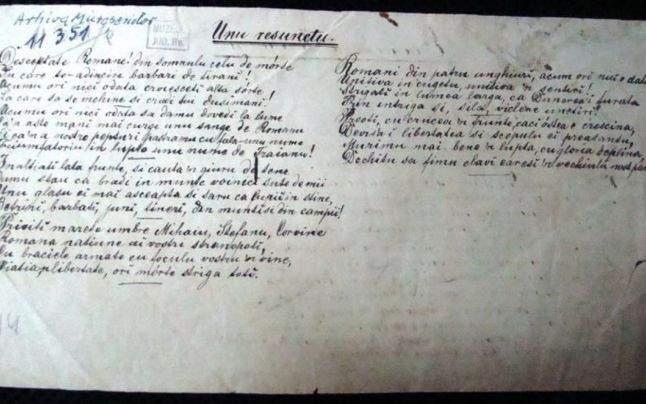 Arhiva Muresenilor
11351
MUZEUL
JUD. BV.
Unu resunetu.
Desceptate Romane! din somnulu celu de mórte
In care te-adincire barbari de tirani!
Acumu ori nici odata croiesceti alta sórte!
La care sa se nchine si crudii tui dusimani!
Acumu ori nici odata sa damu dovedi la lume
Ca n aste mani mai curge unu sange de Romanu
Si ca n a nostre pepturi pastramu cu fala unu nume
Triumfatoriu in lupte unu nume de Traianu!
Inaltiati lata frunte, si cauta n giuru de tene
Cumu stau ca bradi in munte voinici sute de mii
Unu glasu ei mai ascepta si saru ca lupii in stane,
Betrini, barbati, juni, tineri, din munti si din campii!
Priviti marete umbre Mihaiu, Stefanu, Corvine
Romana natiune ai vostri stranepoti,
Cu braciele armate cu foculu vostru n vine,
Viatia n libertate, ori mórte striga toti.
Romani din patru unghiuri, acum ori nici o data
Uniti-va in cugetu, uniti-va n sentiri!
Strigati in lumea larga, ca Dunerea-i furata
Prin intriga si sila, viclene uneltiri!
Preoti, cu crucea n frunte, caci óstea e crescina,
Devisa-i libertatea si scopulu ei preasantu,
Murimu mai bene n lupta, cu gloria deplina,
Dechitu sa fimu sclavi earesi n vechiulu nost pam